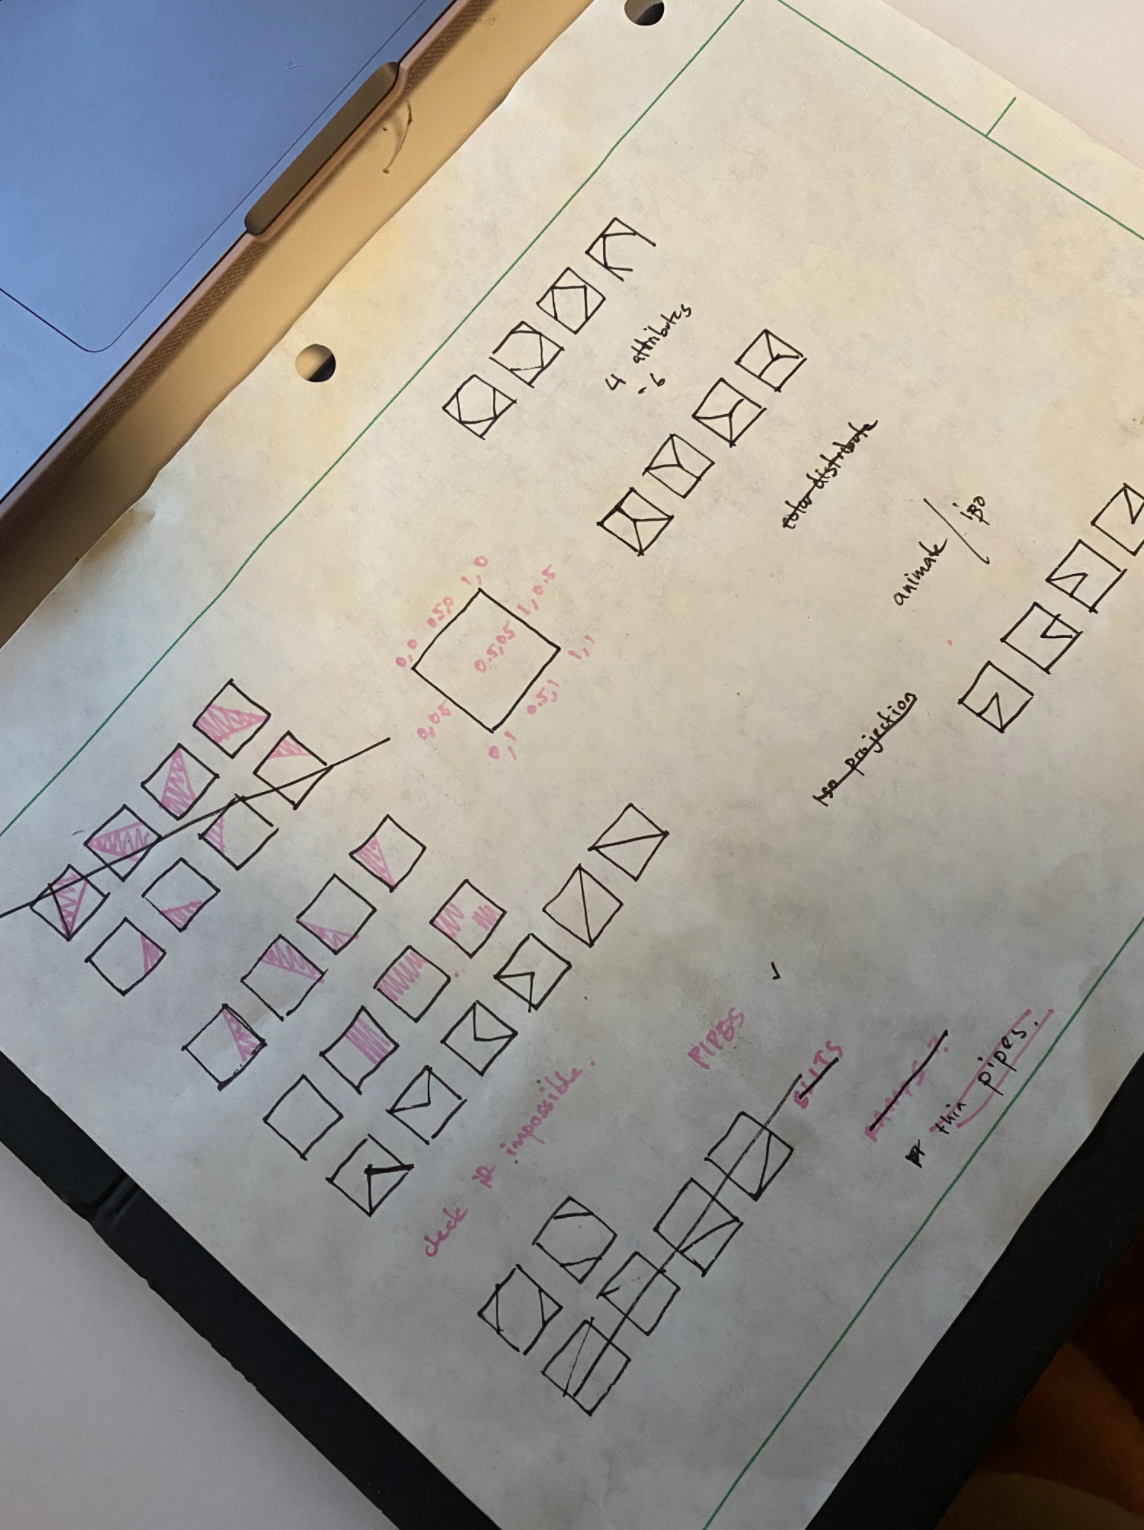 4 attributes
- 6
color distribute
animate / IBO
iso projection
0,0
1,0
1,0.5
0.5,0.5
1,1
0.5,1
0,1
check if impossible.
PIPES
thin pipes.